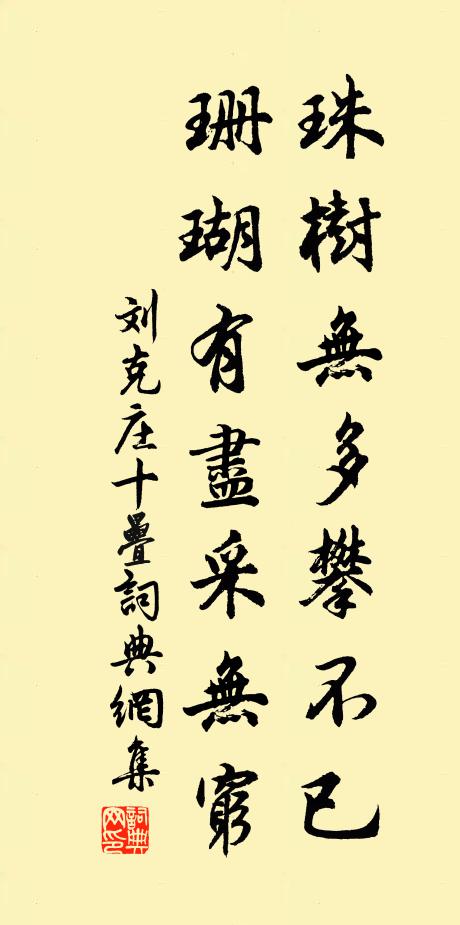 珠樹無多攀不已
珊瑚有盡采無窮
刘克庄十疊詞典網集
詞典网印